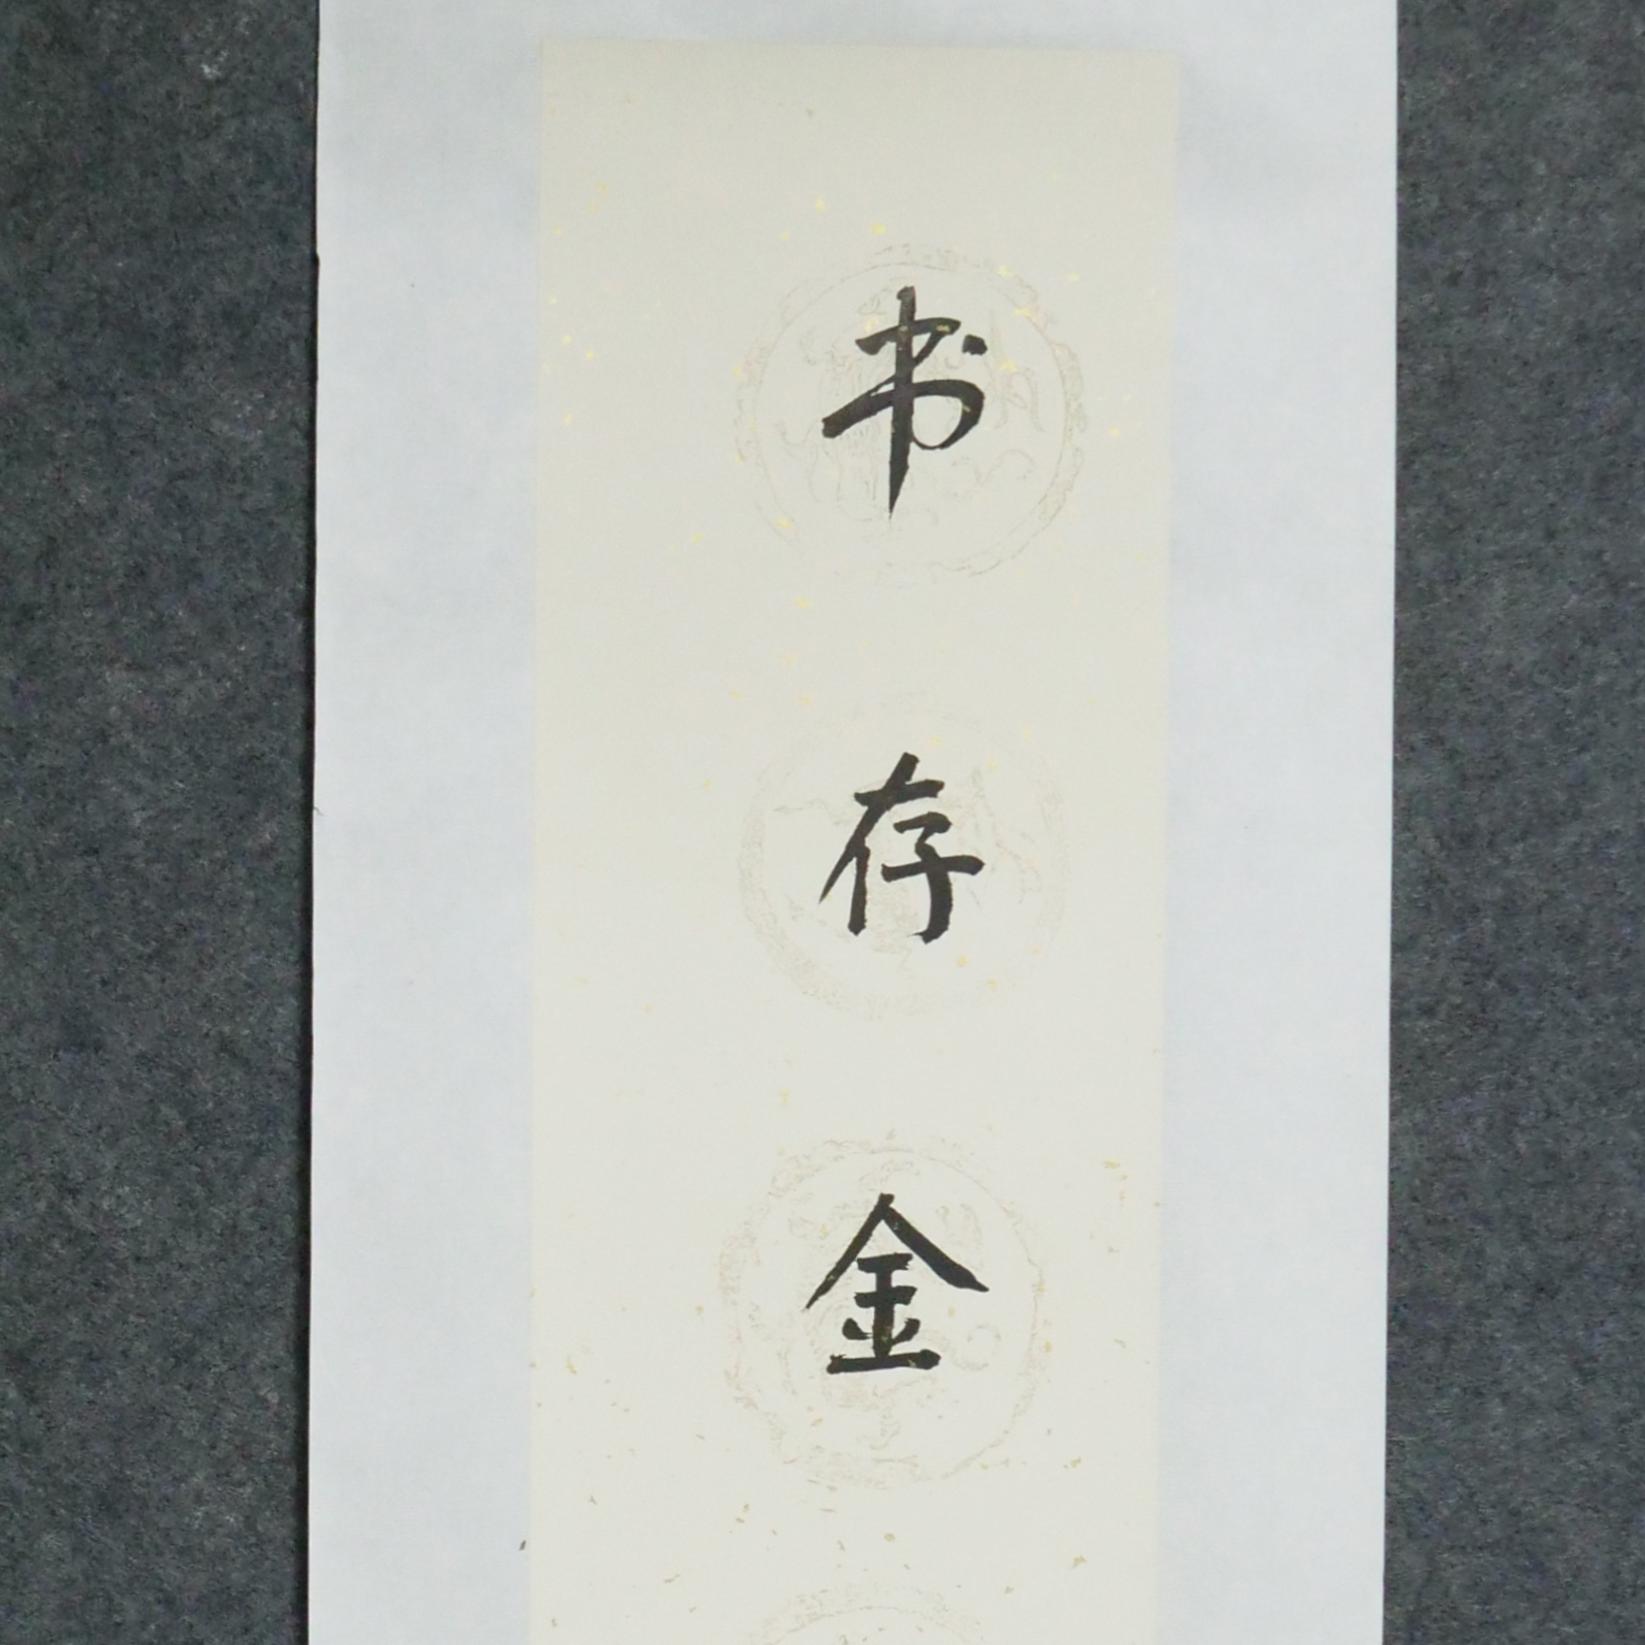 书存金